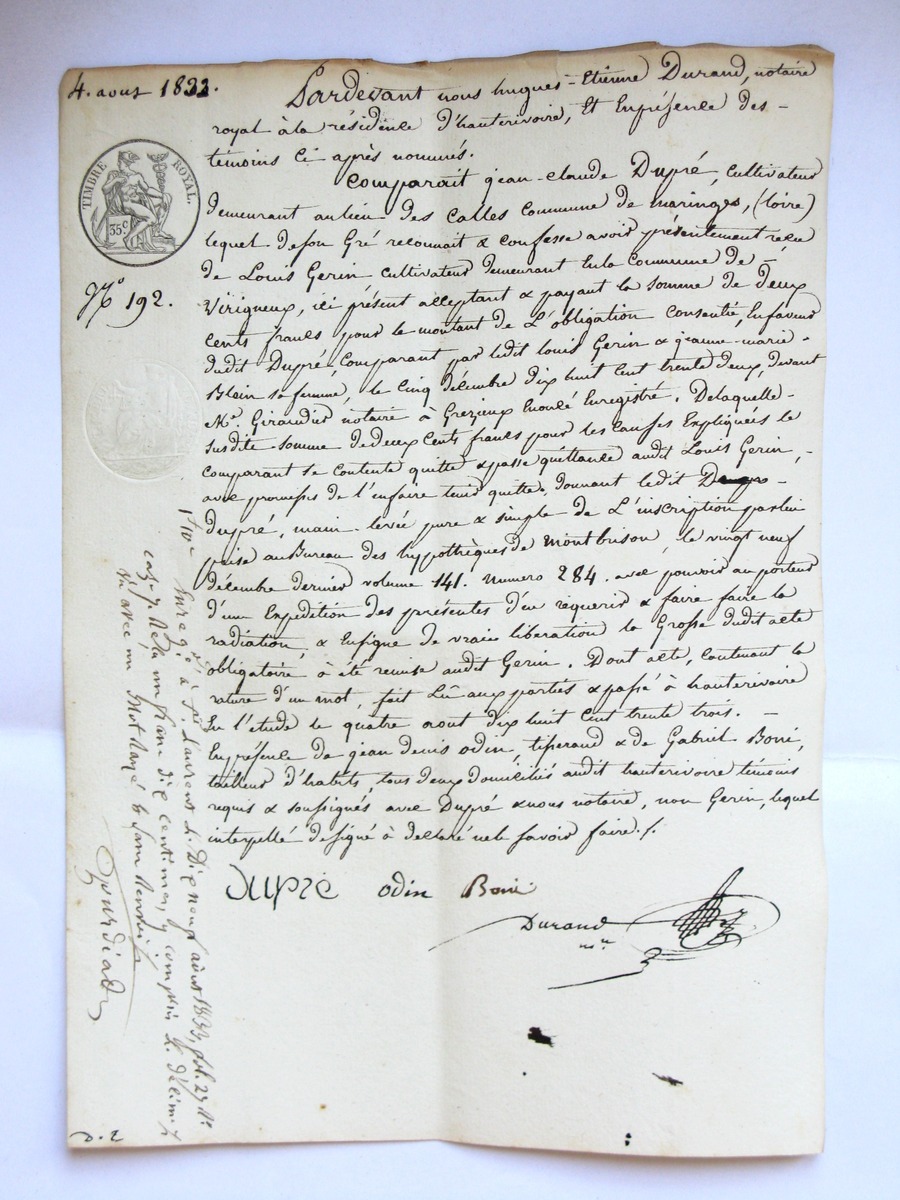 4. aous 1833.
TIMBRE ROYAL.
35 c
N° 192.
Pardevant nous hugues-Etienne Durand, notaire
royal à la résidence d'hauterivoire, Et Enprésence des -
témoins Ci après nommés.
Comparait jean-claude Dupré, cultivateur
demeurant aulieu des Calles Commune de maringes, (loire)
lequel deson Gré reconnait & confesse avoir présentement recu
de Louis Gerin cultivateur demeurant Enla Commune de -
Virigneux, ici présent acceptant & payant la somme de deux
cents francs pour le montant de L'obligation consentie, Enfaveur
dudit Dupré, Comparant par ledit louis Gerin & jeanne-marie -
Blein sa femme, le Cinq décembre dix huit Cent trente deux, devant
Me. Giraudier notaire à Grezieux Enoulé Enregistré. Delaquelle -
susdite somme dedeux Cents francs pour les causes Expliquées le
comparant se Contente quitte & passe quittance audit Louis Gerin, -
avec promesse de l'enfaire tenir quitte. donnant ledit
dupré, main-levée pure & simple de L'inscription parlui
prise auBureau des hypothèques de Montbrison, le vingt neuf
décembre dernier volume 141. Numero 284. avec pouvoir au porteur
d'une Expédition des présentes d'en requerir & faire faire la
radiation, & Ensigne de vraie libération la Grosse dudit acte
obligatoire à été remise audit Gerin. Dont acte, Contenant la
rature d'un mot, fait Lû aux parties & passé à hauterivoire
En l'étude le quatre aout dix huit Cent trente trois. -
Enprésence de jean denis odin, tisserand & de Gabriel Boni,
tailleur d'habits, tous deux domiciliés audit hauterivoire témoins
requis & soussignés avec Dupré & nous notaire, non Gerin, lequel
interpellé designé à déclaré nele savoir faire./.
Dupré odin Boni
Durand
nre
Enregé à St. Laurent le Dix neuf août 1833, fol. 27 Ro
case 7. Reçu un franc dix centimes, y compris le décime
d. 2